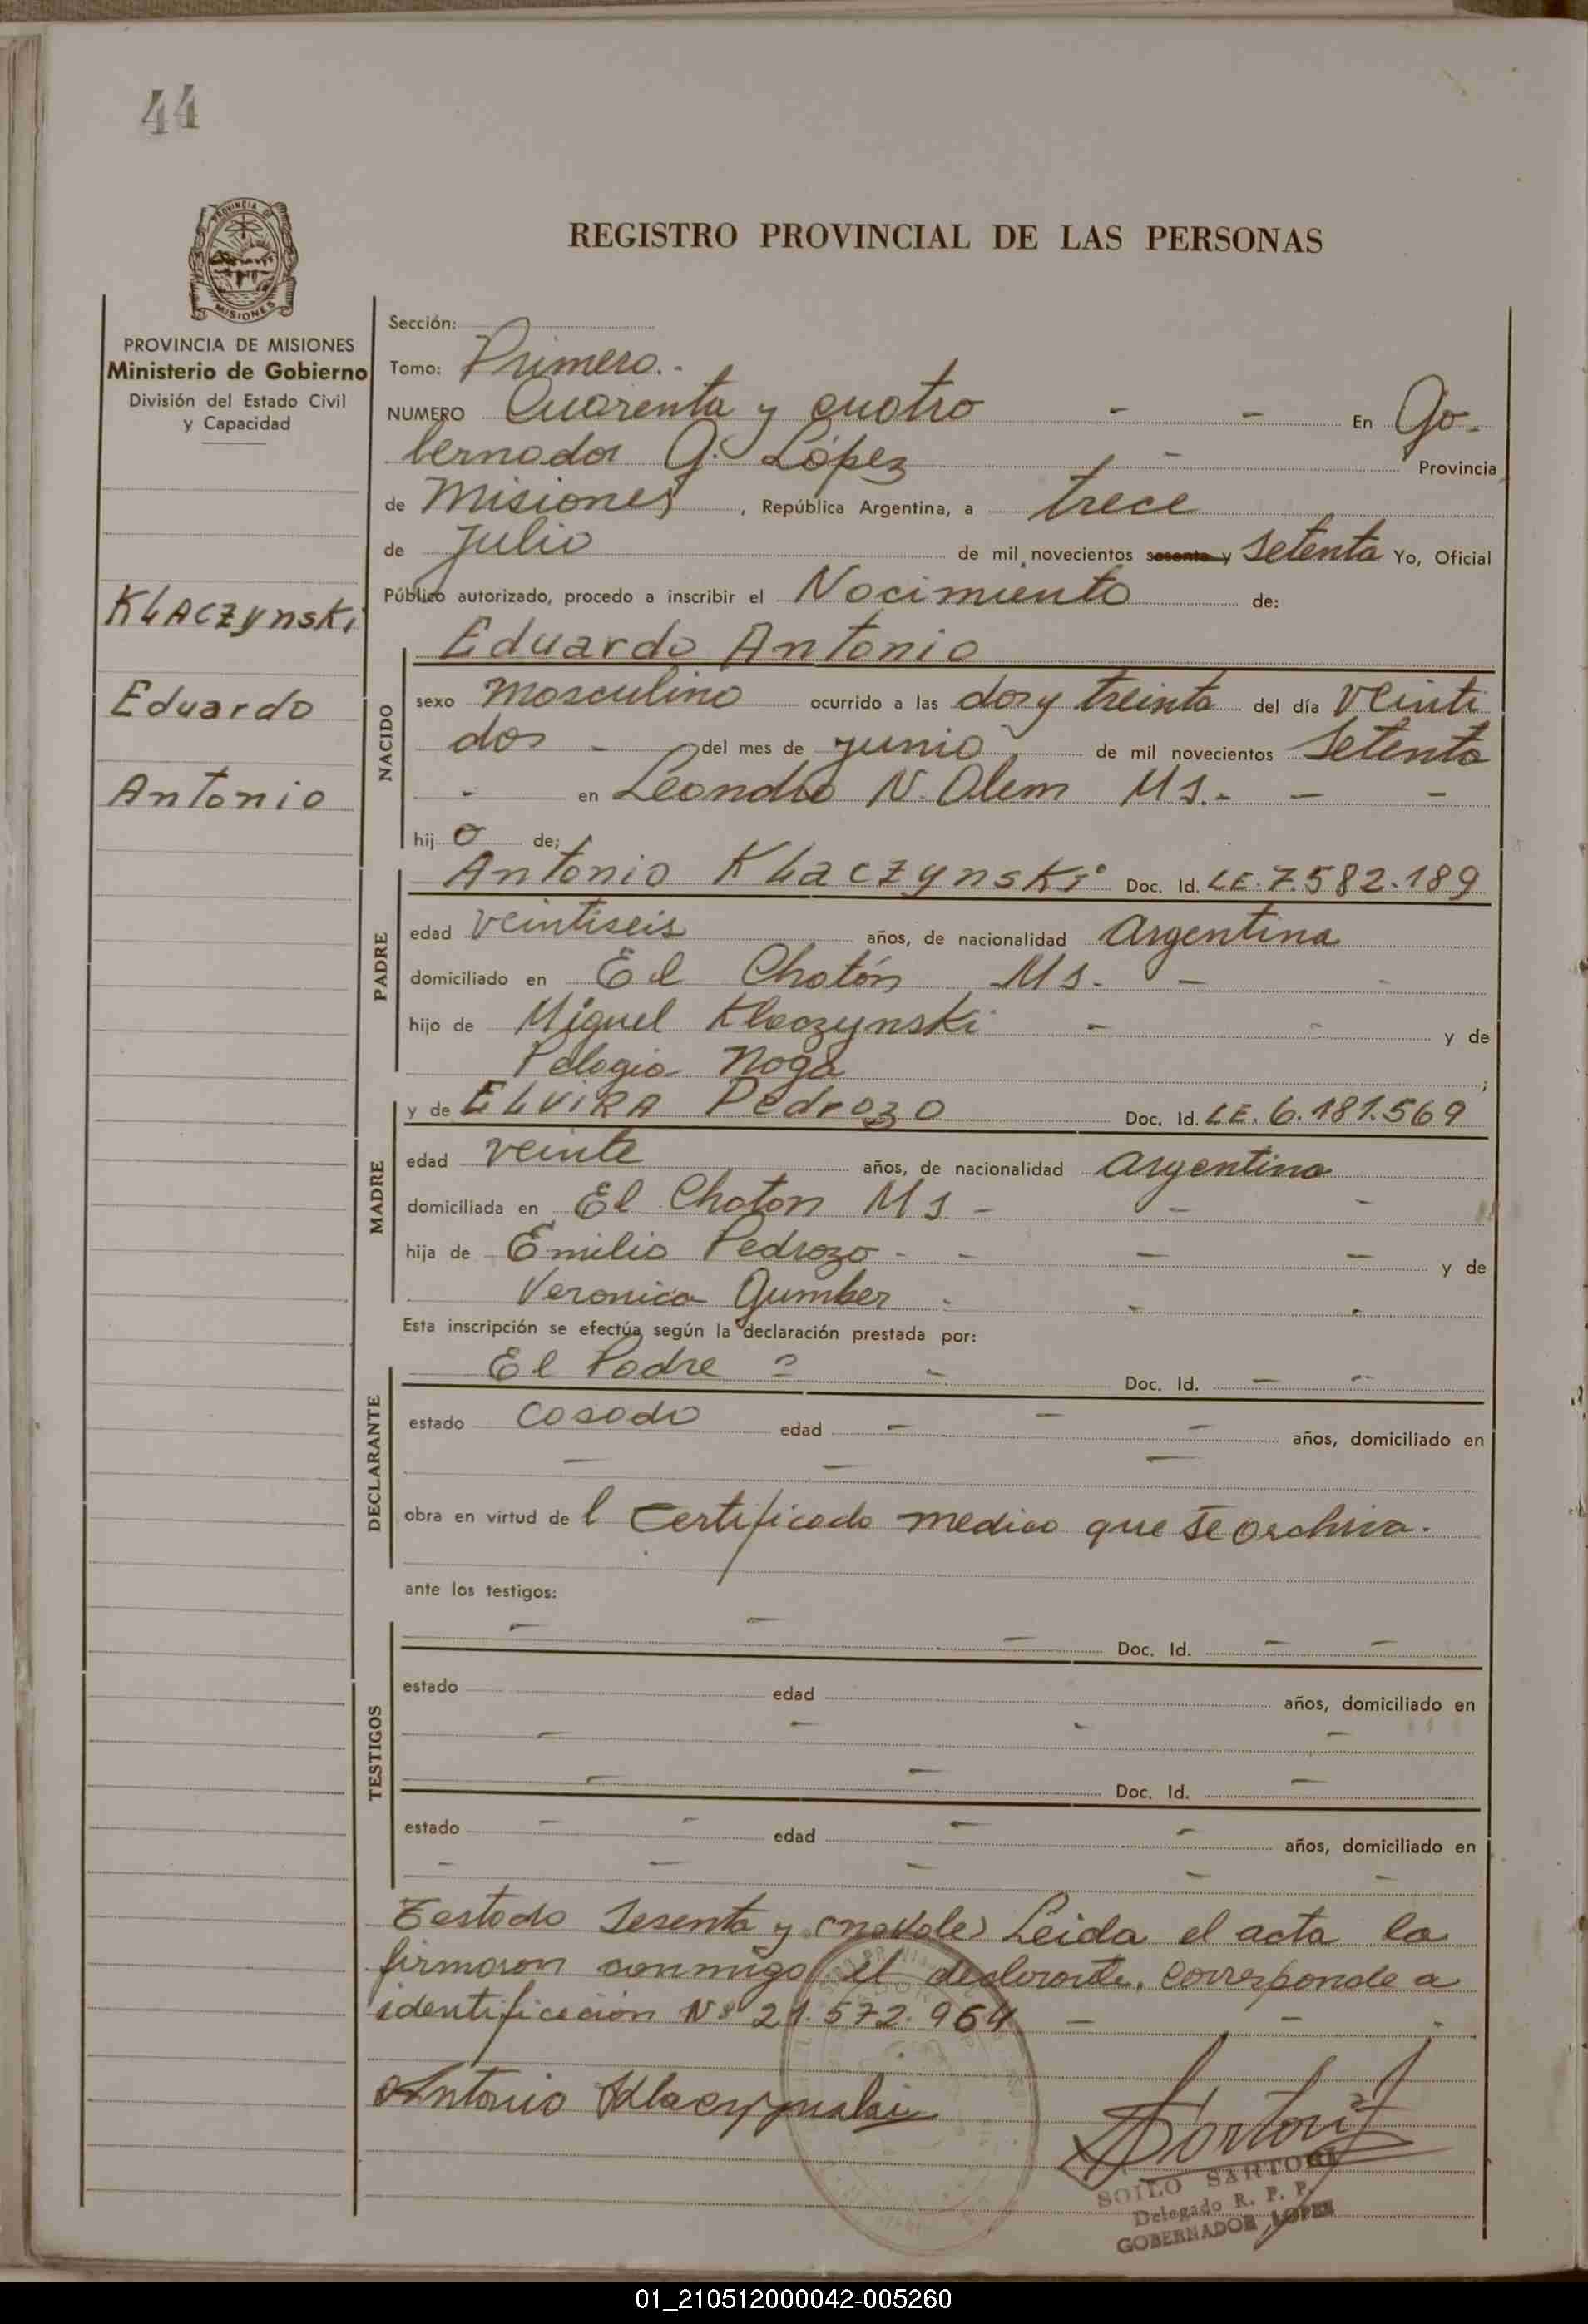 44
PROVINCIA DE
MISIONES
REGISTRO PROVINCIAL DE LAS PERSONAS
PROVINCIA DE MISIONES
Ministerio de Gobierno
División del Estado Civil
y Capacidad
Klaczynski
Eduardo
Antonio
Sección:
Tomo: Primero.-
NUMERO Cuarenta y cuatro - - En Go-
bernador G. López - Provincia
de Misiones, República Argentina, a trece
de Julio de mil novecientos sesenta y Setenta Yo, Oficial
Público autorizado, procedo a inscribir el Nacimiento de:
NACIDO
Eduardo Antonio
sexo Masculino ocurrido a las dos y treinta del día veinti
dos - del mes de junio de mil novecientos Setenta
- en Leandro N. Alem Ms.- - -
hijo de;
PADRE
Antonio Klaczynski Doc. Id. LE. 7.582.189
edad veintiseis años, de nacionalidad Argentina
domiciliado en El Chatón Ms. - -
hijo de Miguel Klaczynski - - y de
Pelagia Noga ;
MADRE
y de Elvira Pedrozo Doc. Id. LE. 6.181.569
edad veinte años, de nacionalidad argentina
domiciliada en El Chaton Ms - - -
hija de Emilio Pedrozo - - - - y de
Veronica Gumber - - -
Esta inscripción se efectúa según la declaración prestada por:
DECLARANTE
El Padre = - Doc. Id. - -
estado casado edad - - - años, domiciliado en
- - -
obra en virtud del Certificado medico que se archiva.
ante los testigos:
TESTIGOS
- - - Doc. Id. - -
estado edad años, domiciliado en
- - - -
- - Doc. Id. -
estado - - edad - - años, domiciliado en
- - - - -
Testado Sesenta y (no vale) Leida el acta la
firmaron conmigo el declarante. corresponde a
identificación Nº 21.572.964 - - -
Antonio Klaczynski
Sartori
SOILO SARTORI
Delegado R. P. P.
GOBERNADOR LOPEZ
01_210512000042-005260